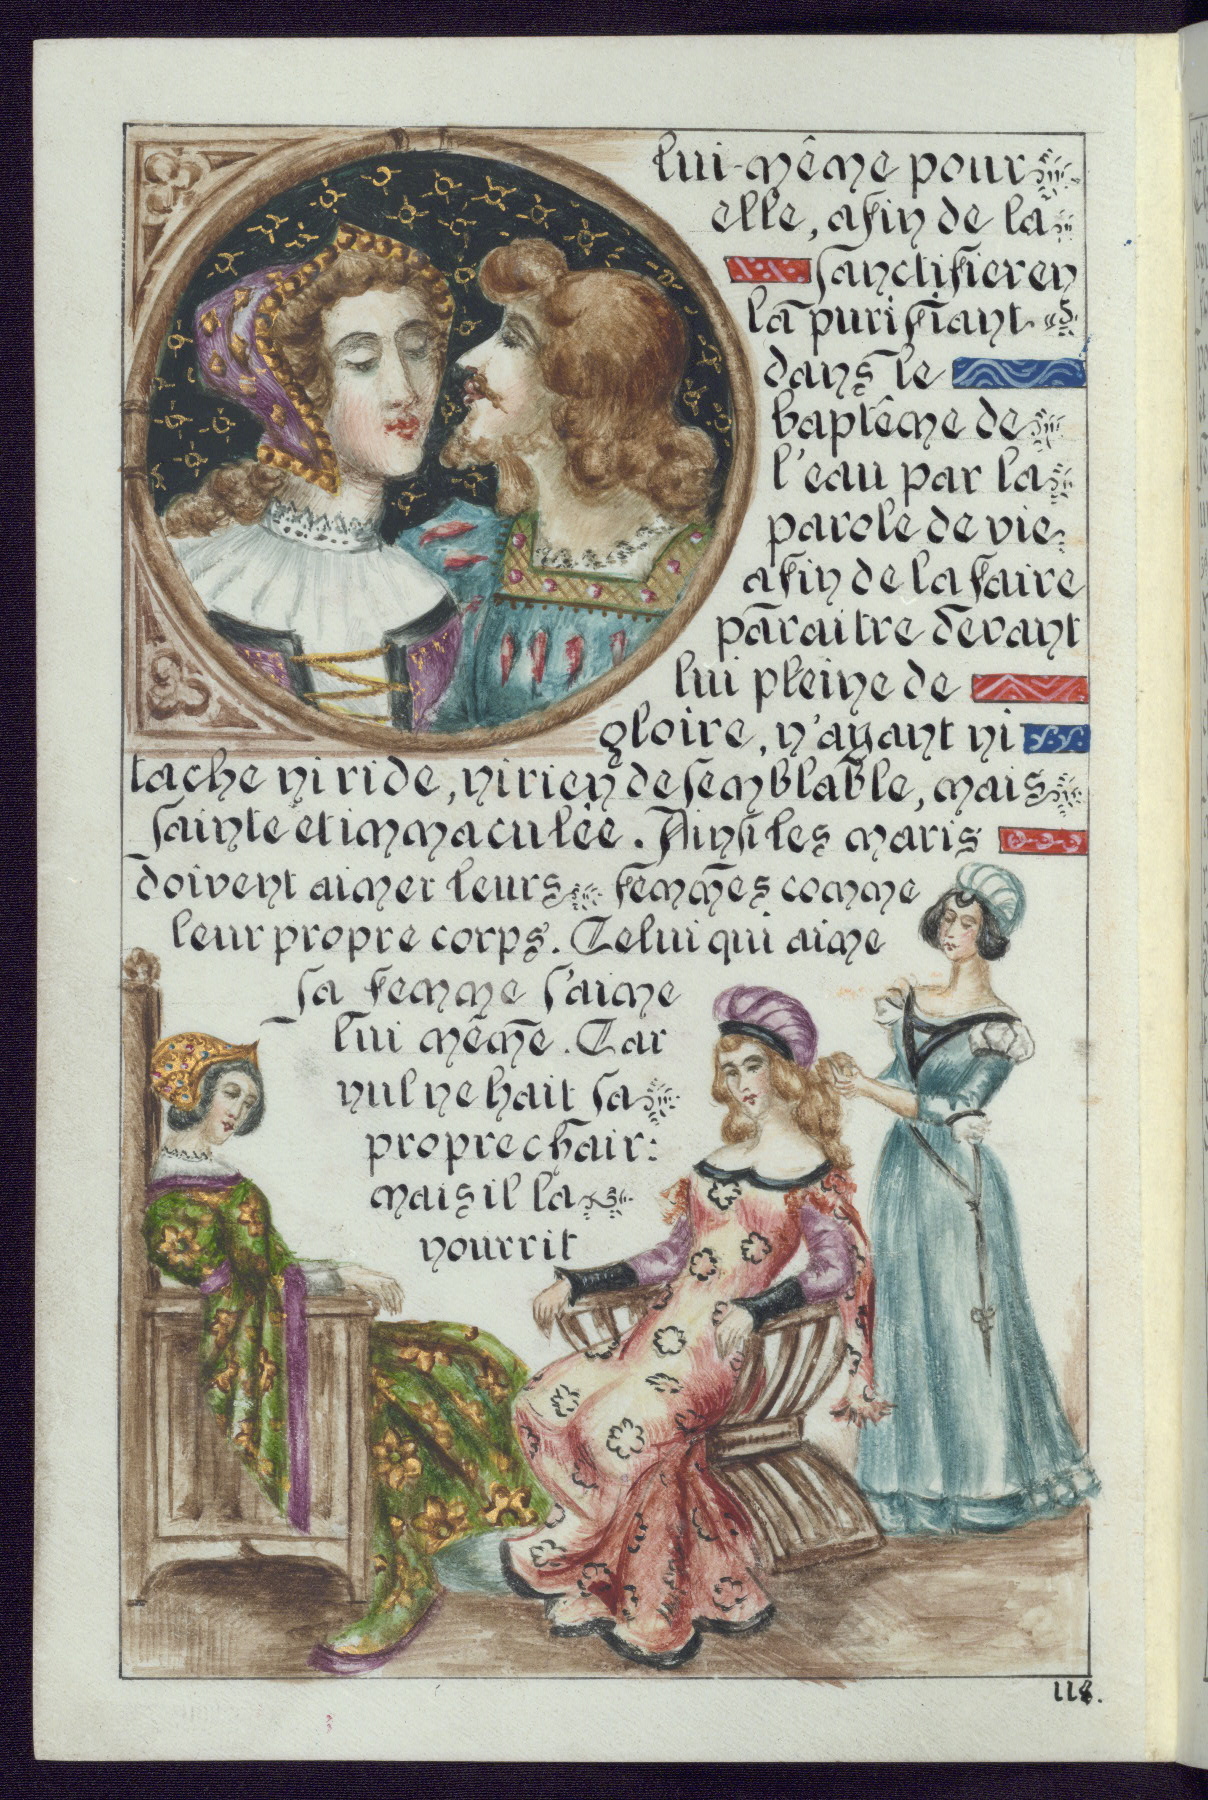 lui-même pour
elle, afin de la
sanctifier en
la purifiant
dans le
baptême de
l'eau par la
parole de vie
afin de la faire
paraitre devant
lui pleine de
gloire, n'ayant ni
tache ni ride, ni rien de semblable, mais
sainte et immaculée. Ainsi les maris
doivent aimer leurs femmes comme
leur propre corps. Celui qui aime
sa femme s'aime
lui même. Car
nul ne hait sa
propre chair:
mais il la
nourrit
118.